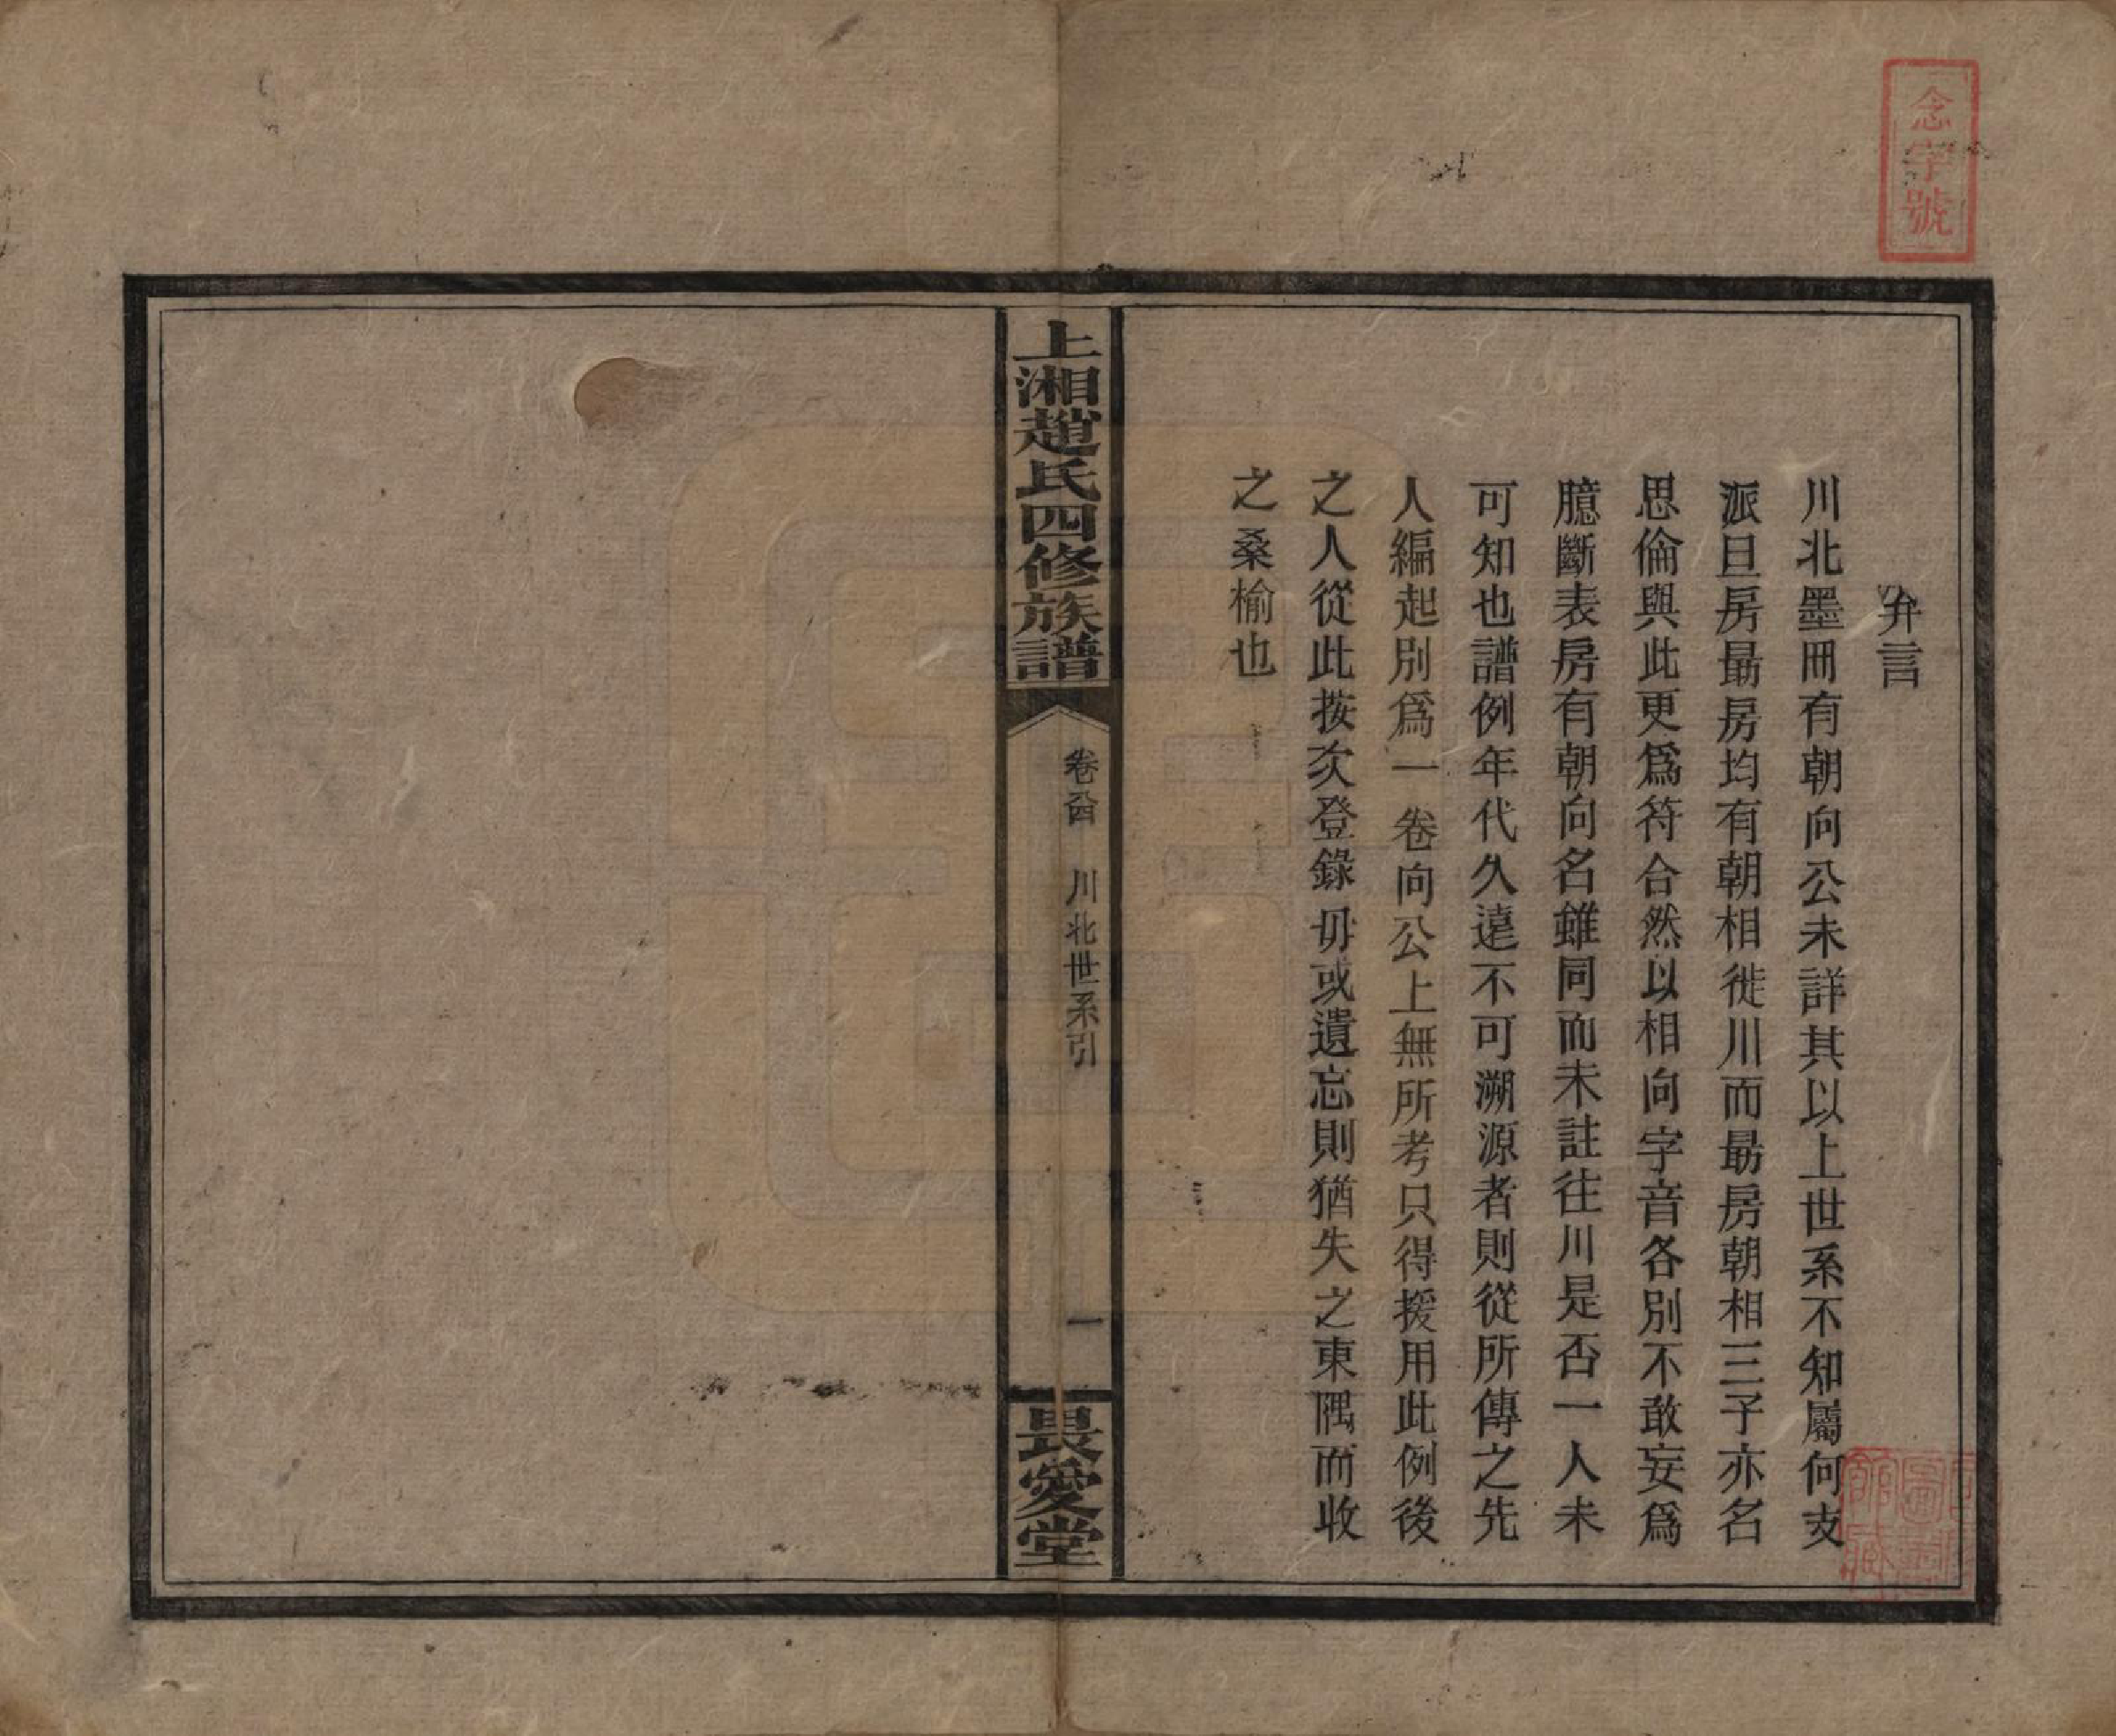 念字號
弁言
川北墨冊有朝向公未詳其以上世系不知屬何支
派旦房最房均有朝相徙川而最房朝相三子亦名
思倫與此更爲符合然以相向字音各別不敢妄爲
臆斷表房有朝向名雖同而未註往川是否一人未
可知也譜例年代久遠不可溯源者則從所傳之先
人編起別爲一卷向公上無所考只得援用此例後
之人從此按次登錄毋或遺忘則猶失之東隅而收
之桑榆也
上湘趙氏四修族譜
川北世系引
一
畏愛堂